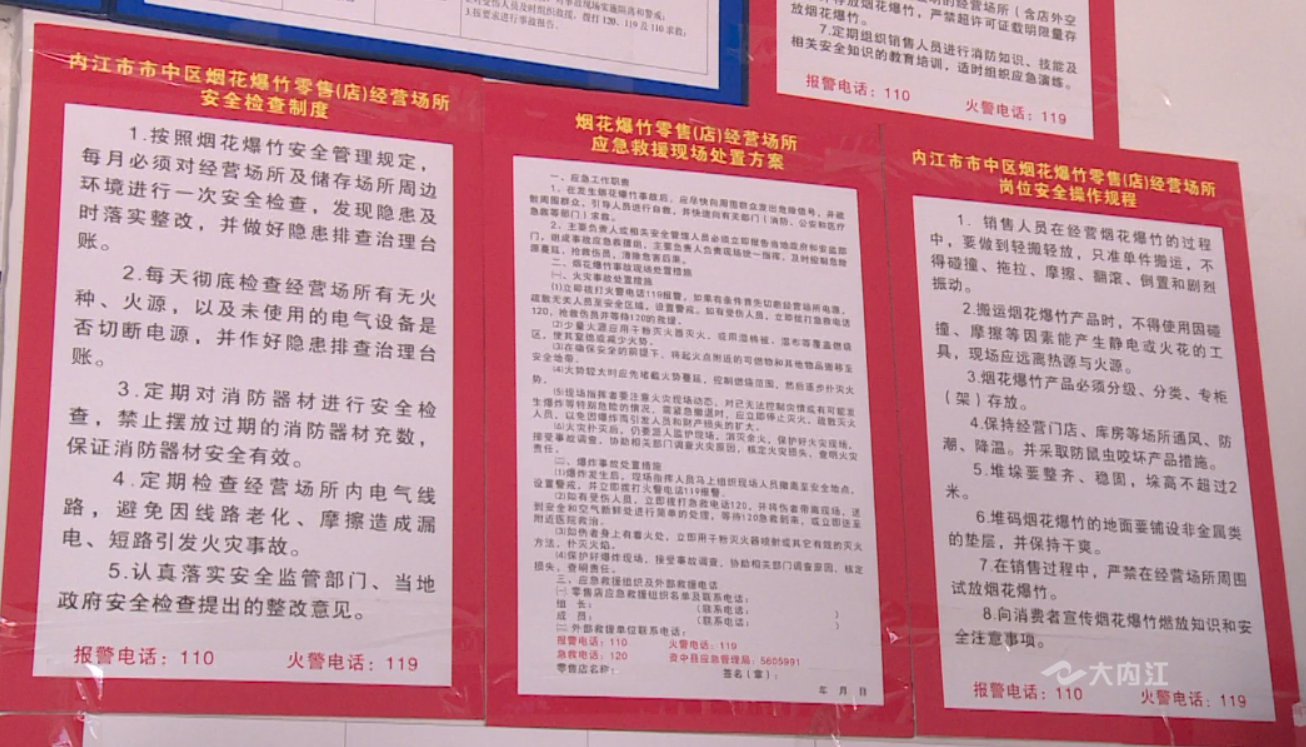 对受伤人员及时组织救援,拨打120、119及110求救;
3.按要求进行事故报告。
的经营场所(含店外空
存放烟花爆竹,严禁超许可证载明限量存
放烟花爆竹。
7.定期组织销售人员进行消防知识、技能及
相关安全知识的教育培训,适时组织应急演练。
报警电话:110 火警电话:119
内江市市中区烟花爆竹零售(店)经营场所
安全检查制度
1.按照烟花爆竹安全管理规定,
每月必须对经营场所及储存场所周边
环境进行一次安全检查,发现隐患及
时落实整改,并做好隐患排查治理台
账。
2.每天彻底检查经营场所有无火
种、火源,以及未使用的电气设备是
否切断电源,并作好隐患排查治理台
账。
3.定期对消防器材进行安全检
查,禁止摆放过期的消防器材充数,
保证消防器材安全有效。
4.定期检查经营场所内电气线
路,避免因线路老化、摩擦造成漏
电、短路引发火灾事故。
5.认真落实安全监管部门、当地
政府安全检查提出的整改意见。
报警电话:110 火警电话:119
烟花爆竹零售(店)经营场所
应急救援现场处置方案
一、应急工作职责
1、在发生烟花爆竹事故后,应尽快向周围群众发出危险信号,并疏
散周围群众,引导人员进行自救,并快速向有关部门(消防、公安和医疗
急救等部门)求救。
2、主要负责人或相关安全管理人员必须立即报告当地政府和安监部
门,组成事故应急救援组,主要负责人负责现场统一指挥,及时控制危险
源蔓延,抢救伤员,清除危害后果。
二、烟花爆竹事故现场处置措施
㈠、火灾事故处置措施
⑴立即拨打火警电话119报警,如果有条件首先切断经营场所电源,
疏散无关人员至安全区域,设置警戒,如有受伤人员,立即拨打急救电话
120,抢救伤员并等待120的救援。
⑵少量火源应用干粉灭火器灭火,或用湿棉被、湿布等覆盖燃烧
区,使其窒熄或减少火势。
⑶在确保安全的前提下,将起火点附近的可燃物和其他物品搬移至
安全地带。
⑷火势较大时应先堵截火势蔓延,控制燃烧范围,然后逐步扑灭火
势。
⑸现场指挥者要注意火灾现场动态,对已无法控制灾情或有可能发
生爆炸等特别危险的情况,需紧急撤退时,应立即停止灭火,疏散灭火
人员,以免因爆炸而引发人员和财产损失的扩大。
⑹火灾扑灭后,仍要派人监护现场,消灭余火,保护好火灾现场,
接受事故调查,协助相关部门调查火灾原因,核定火灾损失,查明火灾
责任。
㈡、爆炸事故处置措施
⑴爆炸发生后,现场指挥人员马上组织现场人员撤离至安全地点,
设置警戒,并立即拨打火警电话119报警。
⑵如有受伤人员,立即拨打急救电话120,并将伤者带离现场,送
到安全和空气新鲜处进行简单的处理,等待120急救到来,或立即送至
附近医院救治。
⑶如伤者身上有着火处,立即用干粉灭火器喷射或其它有效的灭火
方法,扑灭火焰。
⑷保护好爆炸现场,接受事故调查,协助相关部门调查原因,核定
损失,查明责任。
三、应急救援组织及外部救援电话
㈠零售店应急救援组织名单及联系电话:
组 长: (联系电话: )
成 员: (联系电话: )
㈡外部救援单位联系电话:
报警电话:110 火警电话:119
急救电话:120 资中县应急管理局:5605991
零售店名称: 签名(章):
年 月 日
内江市市中区烟花爆竹零售(店)经营场所
岗位安全操作规程
1.销售人员在经营烟花爆竹的过程
中,要做到轻搬轻放,只准单件搬运,不
得碰撞、拖拉、摩擦、翻滚、倒置和剧烈
振动。
2.搬运烟花爆竹产品时,不得使用因碰
撞、摩擦等因素能产生静电或火花的工
具,现场应远离热源与火源。
3.烟花爆竹产品必须分级、分类、专柜
(架)存放。
4.保持经营门店、库房等场所通风、防
潮、降温。并采取防鼠虫咬坏产品措施。
5.堆垛要整齐、稳固,垛高不超过2
米。
6.堆码烟花爆竹的地面要铺设非金属类
的垫层,并保持干爽。
7.在销售过程中,严禁在经营场所周围
试放烟花爆竹。
8.向消费者宣传烟花爆竹燃放知识和安
全注意事项。
大内江
报警电话:110 火警电话:119